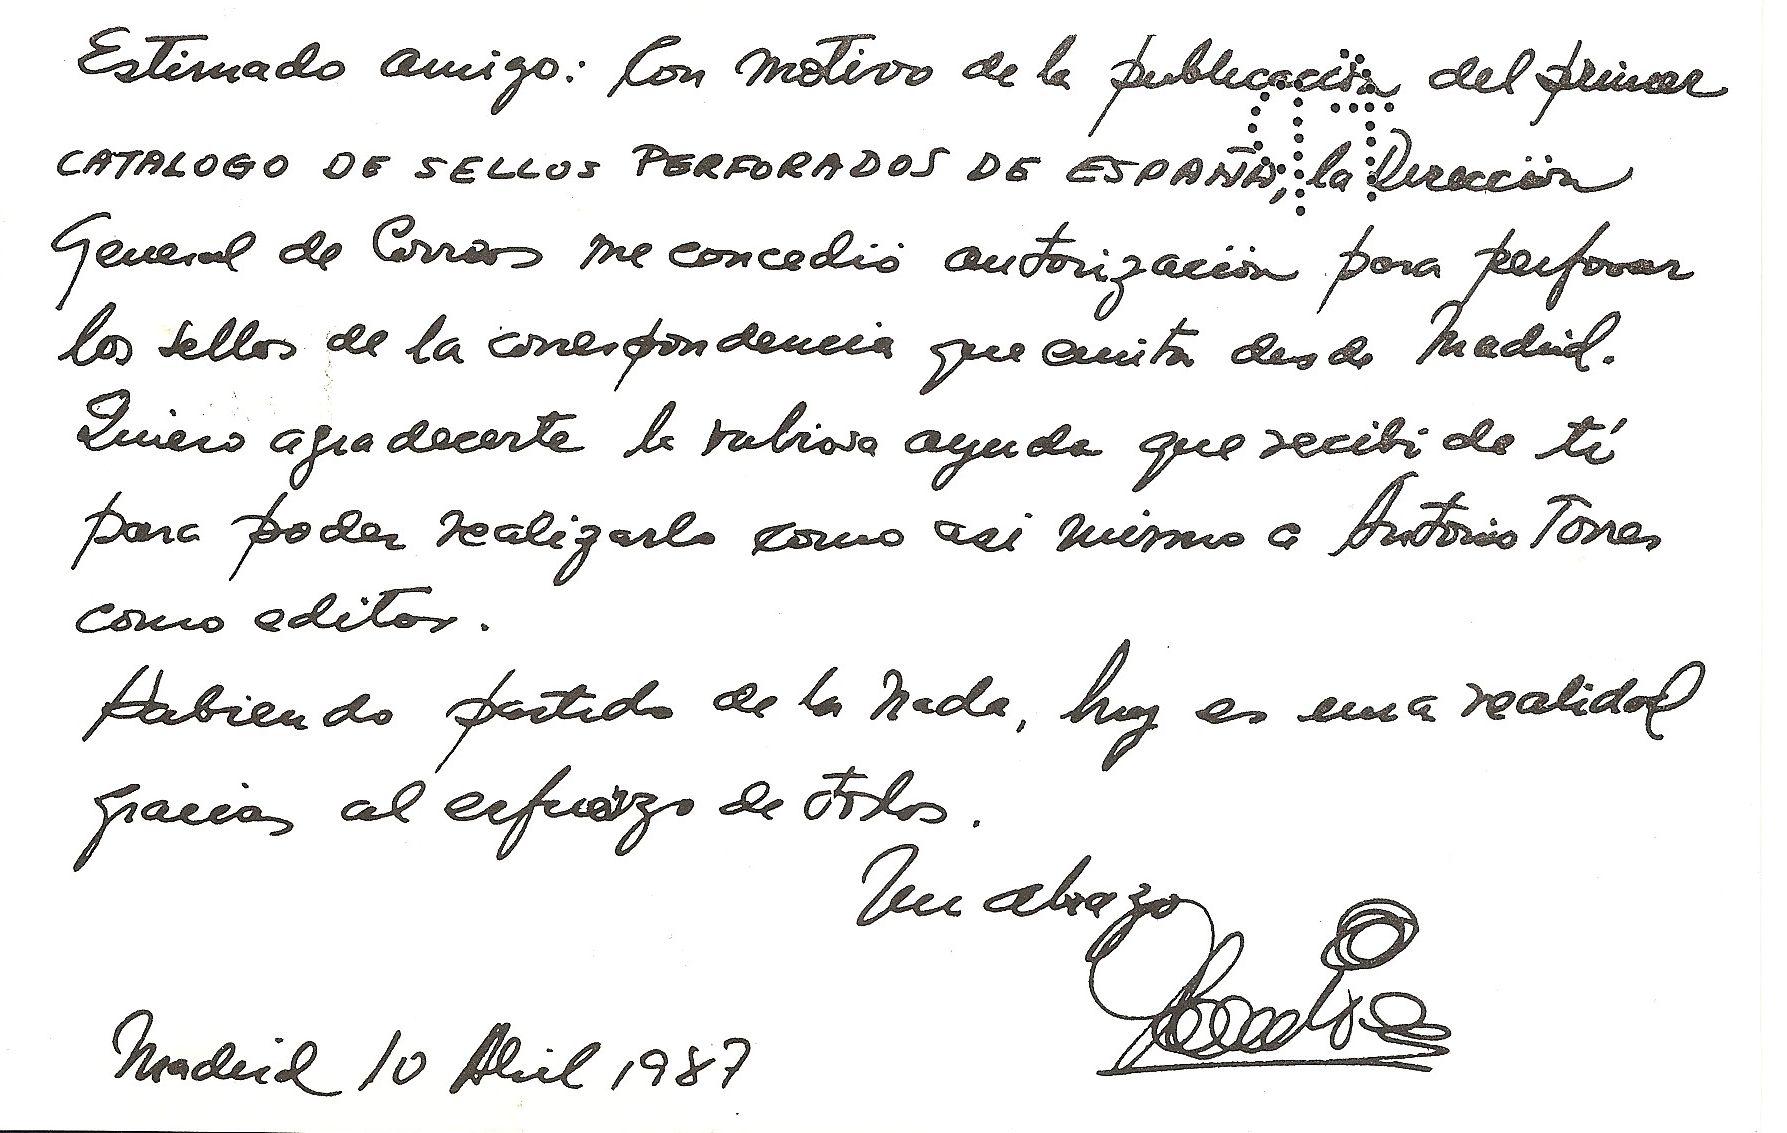 Estimado amigo: Con motivo de la publicación del primer
CATALOGO DE SELLOS PERFORADOS DE ESPAÑA, la Dirección
General de Correos me concedió autorización para perforar
los sellos de la correspondencia que emita desde Madrid.
Quiero agradecerte la valiosa ayuda que recibi de tí
para poder realizarlo como asi mismo a Antonio Torres
como editor.
Habiendo partido de la nada, hoy es una realidad
gracias al esfuerzo de todos.
Un abrazo
Madrid 10 Abril 1987